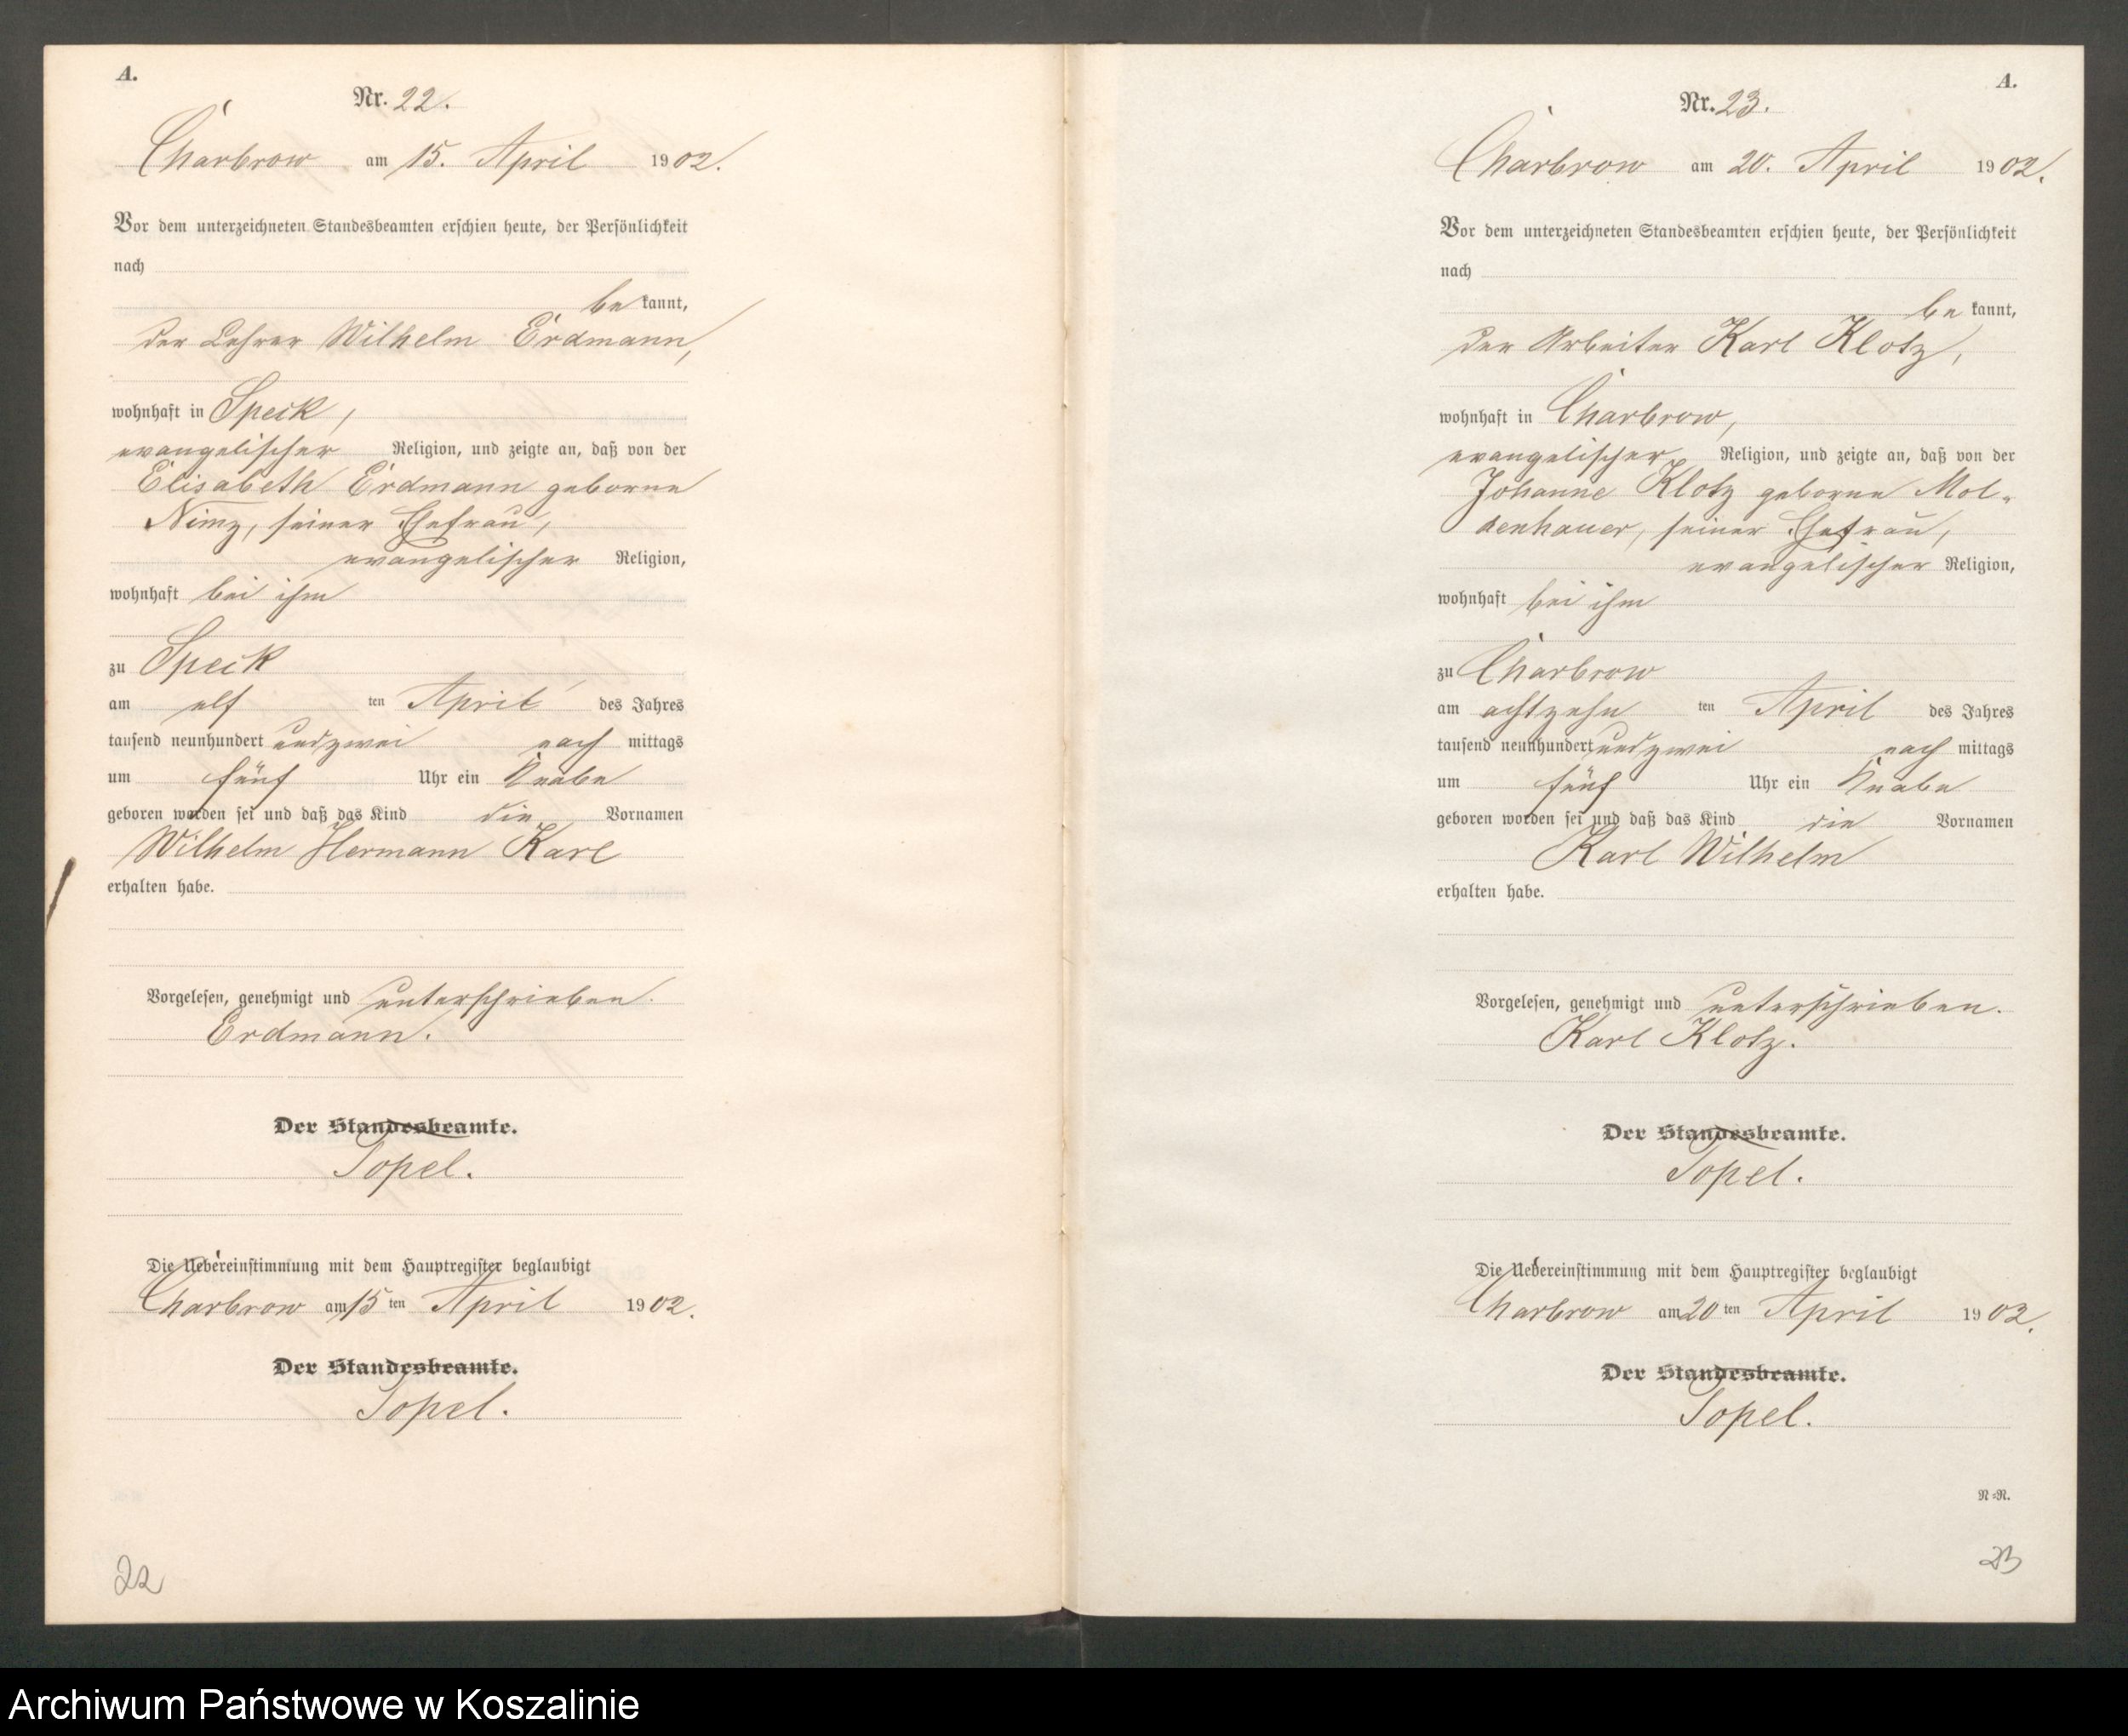 A.
Nr. 22.
Charbrow am 15. April 1902.
Vor dem unterzeichneten Standesbeamten erschien heute, der Persönlichkeit
nach
be kannt,
der Lehrer Wilhelm Erdmann,
wohnhaft in Speck,
evangelischer Religion, und zeigte an, daß von der
Elisabeth Erdmann geborne
Nimz, seiner Ehefrau,
evangelischer Religion,
wohnhaft bei ihm
zu Speck
am elf ten April des Jahres
tausend neunhundert undzwei nach mittags
um fünf Uhr ein Knabe
geboren worden sei und daß das Kind die Vornamen
Wilhelm Hermann Karl
erhalten habe.
Vorgelesen, genehmigt und unterschrieben.
Erdmann.
Der Standesbeamte.
Topel.
Die Uebereinstimmung mit dem Hauptregister beglaubigt
Charbrow am 15 ten April 1902.
Der Standesbeamte.
Topel.
22
A.
Nr. 23.
Charbrow am 20. April 1902.
Vor dem unterzeichneten Standesbeamten erschien heute, der Persönlichkeit
nach
be kannt,
der Arbeiter Karl Klotz,
wohnhaft in Charbrow,
evangelischer Religion, und zeigte an, daß von der
Johanne Klotz geborne Mol-
denhauer, seiner Ehefrau,
evangelischer Religion,
wohnhaft bei ihm
zu Charbrow
am achtzehn ten April des Jahres
tausend neunhundert undzwei nach mittags
um fünf Uhr ein Knabe
geboren worden sei und daß das Kind die Vornamen
Karl Wilhelm
erhalten habe.
Vorgelesen, genehmigt und unterschrieben.
Karl Klotz.
Der Standesbeamte.
Topel.
Die Uebereinstimmung mit dem Hauptregister beglaubigt
Charbrow am 20 ten April 1902.
Der Standesbeamte.
Topel.
N=R.
23
Archiwum Państwowe w Koszalinie